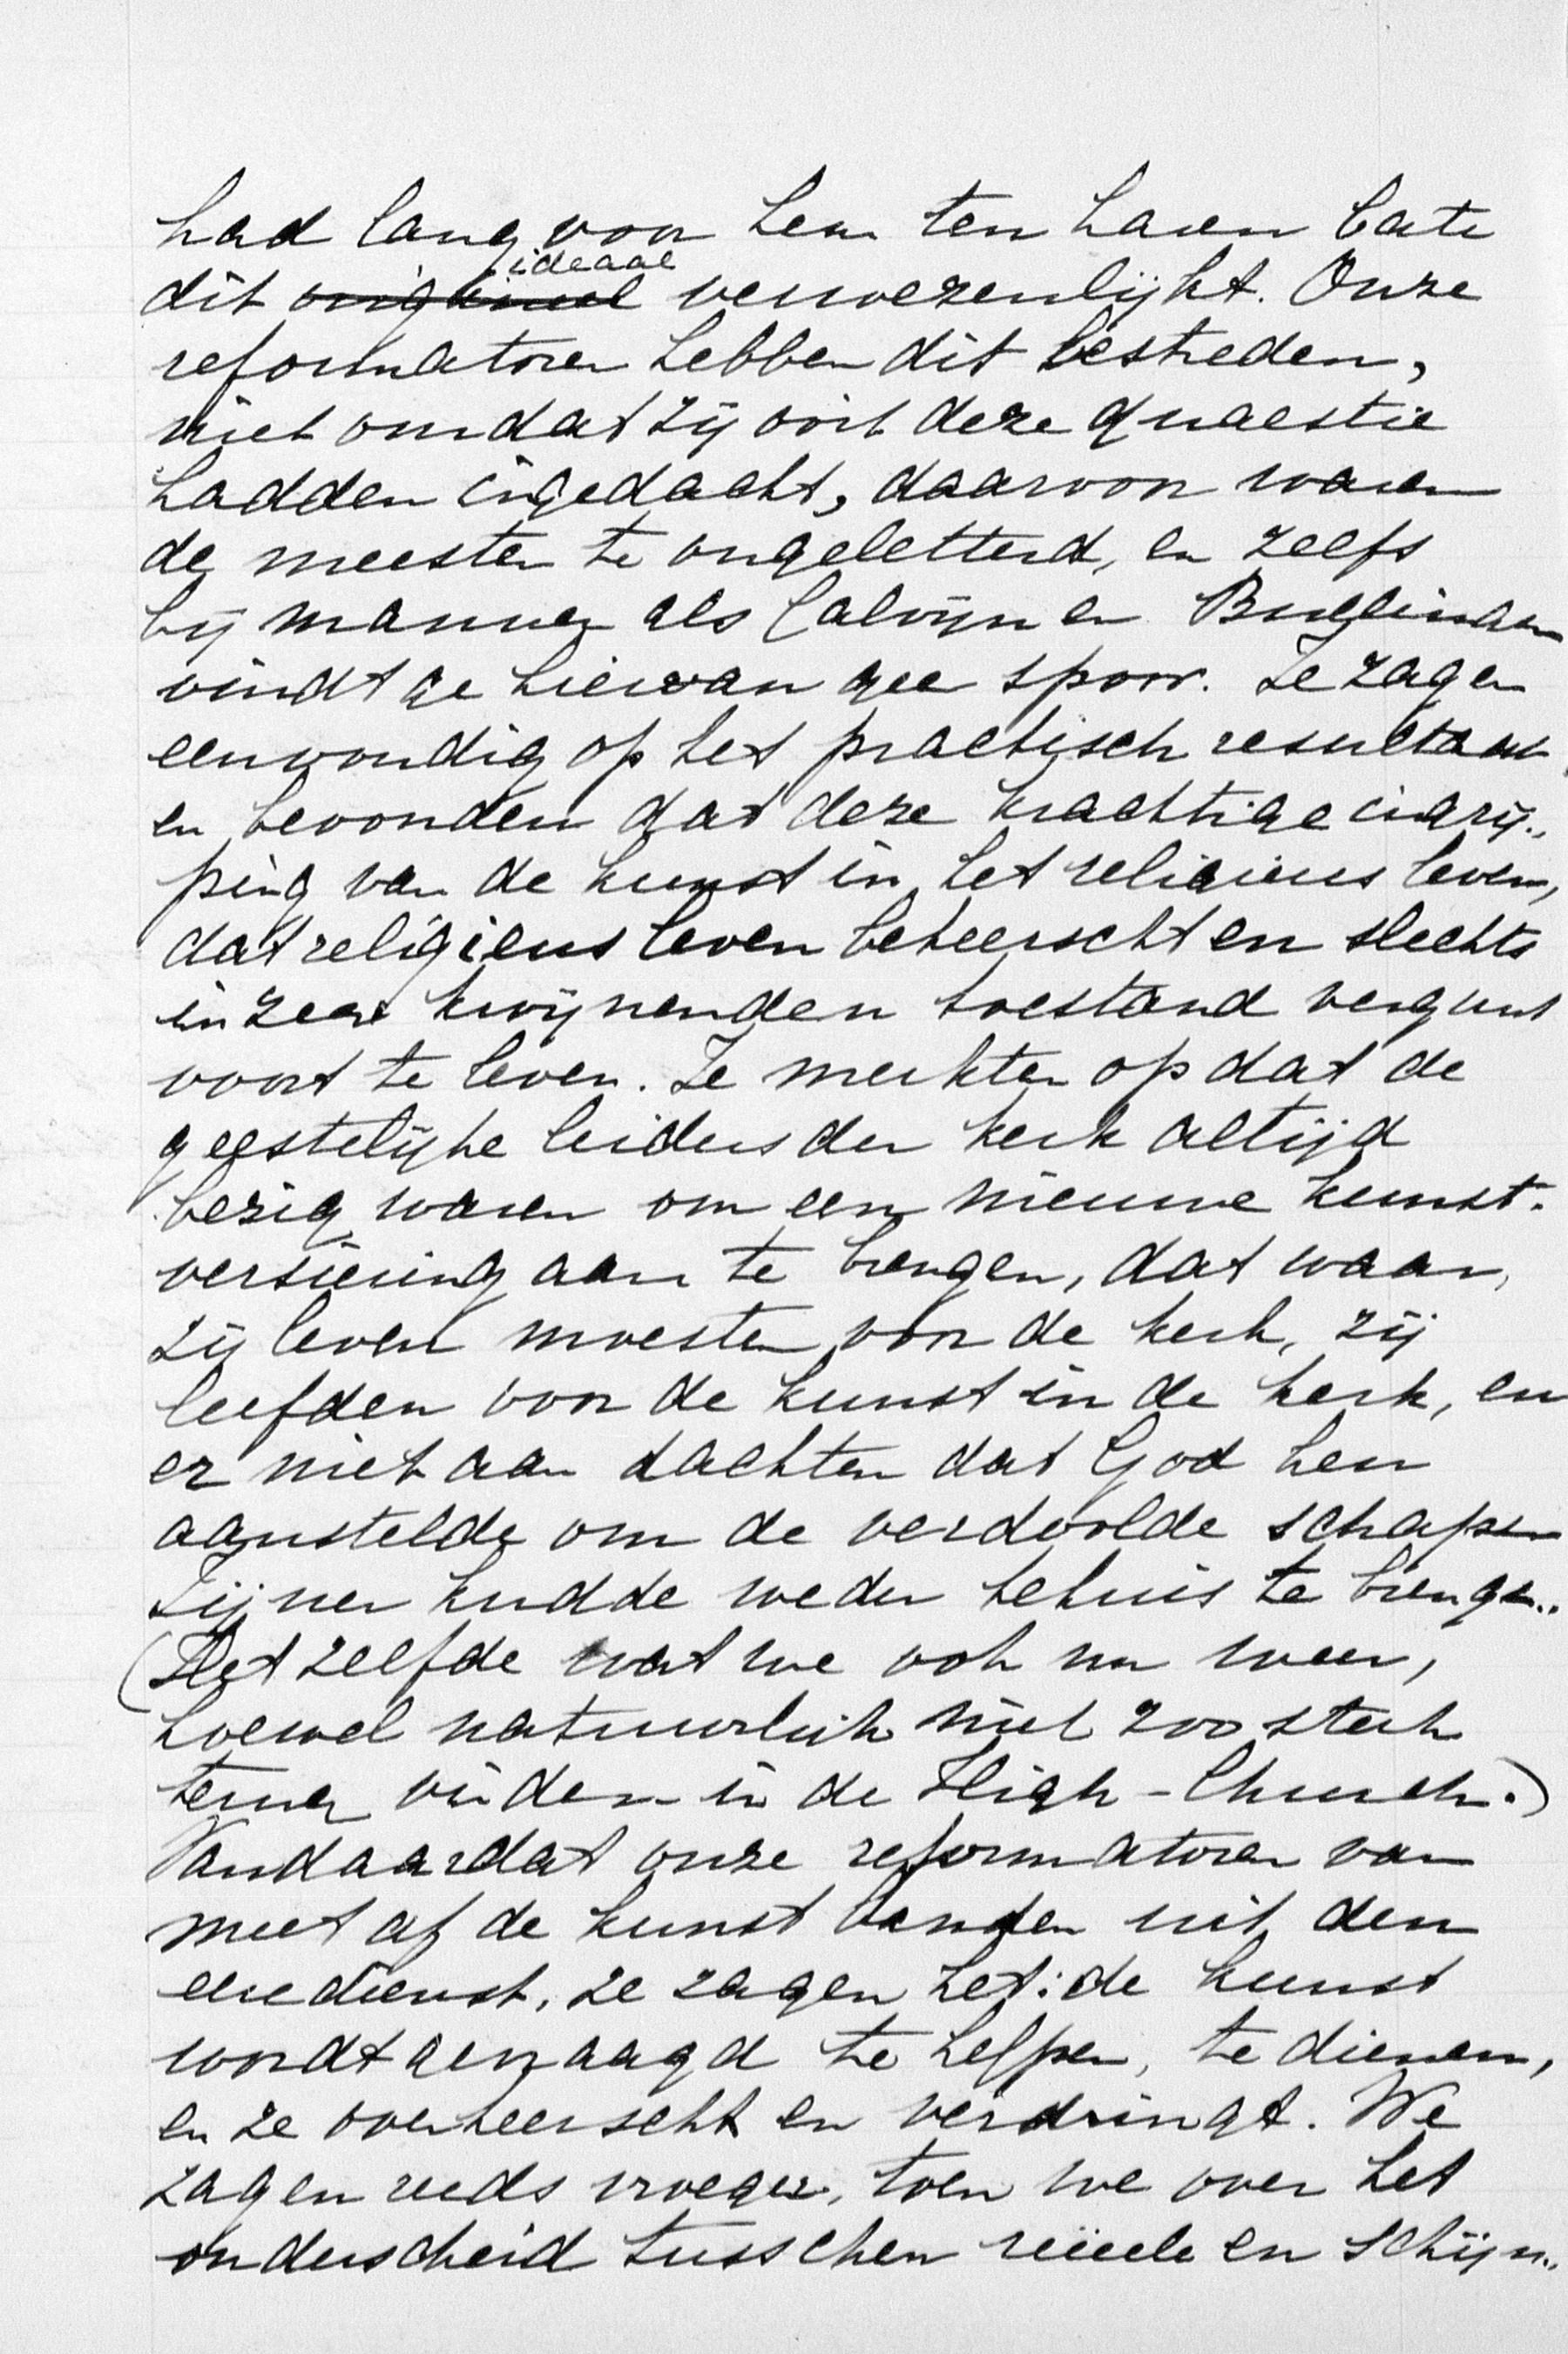 had lang voor hem ten haren bate
dit ideaal verwezenlijkt. Onze
reformatoren hebben dit bestreden,
niet omdat zij ooit deze quaestie
hadden ingedacht, daarvoor waren
de meesten te ongeletterd, en zelfs
bij mannen als Calvijn en Bullinger
vindt ge hiervan gee spoor. Ze zagen
eenvoudig op het practisch resultaat
en bevonden dat deze krachtige ingrij-
ping van de kunst in het religieus leven,
dat religieus leven beheerscht en slechts
in zeer kwijnenden toestand vergunt
voort te leven. Ze merkten op dat de
geestelijke leiders der kerk altijd
bezig waren om een nieuwe kunst-
versiering aan te brengen, dat waar,
zij leven moesten voor de kerk, zij
leefden voor de kunst in de kerk, en
er niet aan dachten dat God hen
aanstelde om de verdoolde schapen
Zijner kudde weder tehuis te brengen.
(Het zelfde wat we ook nu weer,
hoewel natuurlijk niet zoo sterk
terug vinden in de High-Church.)
Vandaar dat onze reformatoren van
meet af de kunst banden uit den
eeredienst, ze zagen het: de kunst
wordt gevraagd te helpen, te dienen,
en ze overheerscht en verdringt. We
zagen reeds vroeger, toen we over het
onderscheid tusschen reëele en schijn-